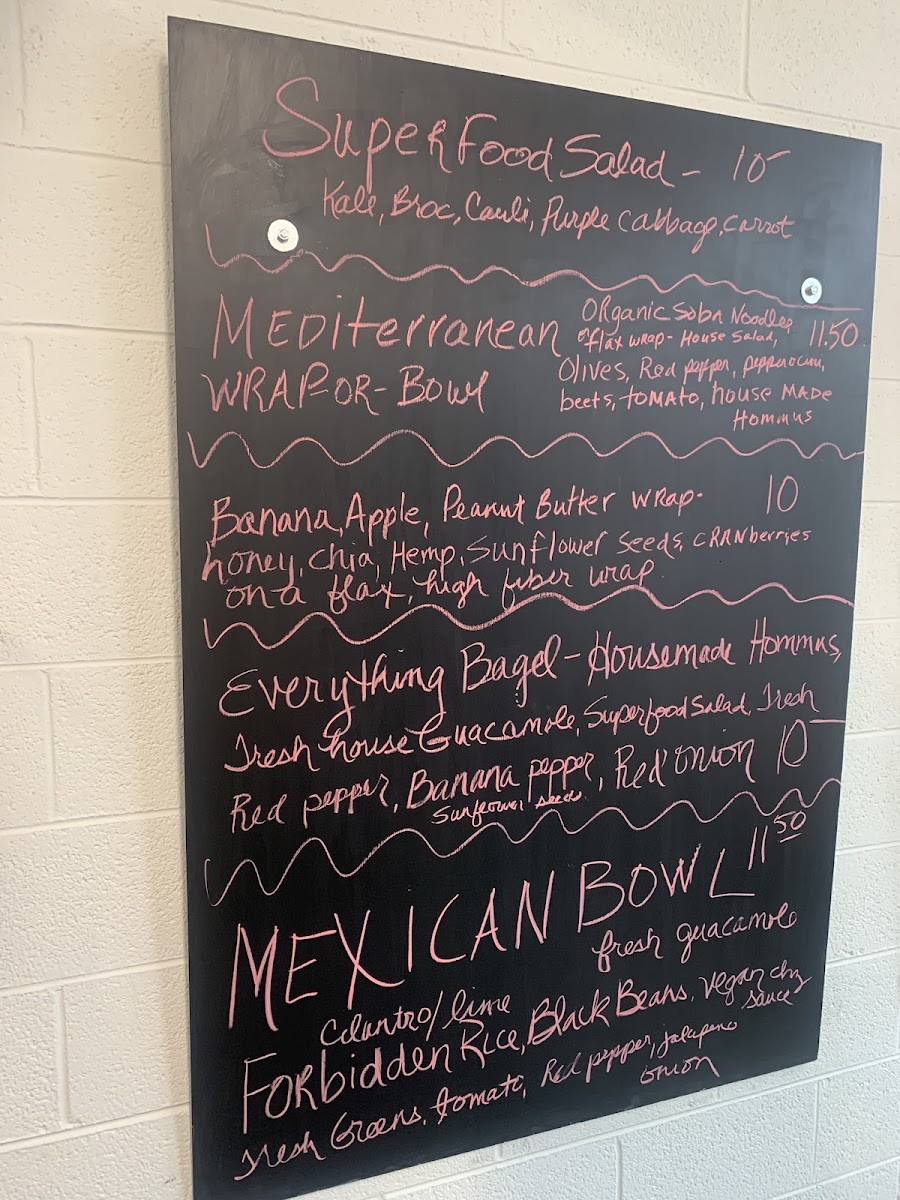 SuperFood Salad - 10
Kale, Broc, Cauli, Purple Cabbage, carrot
MEDiterranean
WRAP-OR-Bowl
Organic Soba Noodles
or flax wrap - House Salad, 11.50
Olives, Red pepper,
beets, tomato, house MADE
Hommus
Banana, Apple, Peanut Butter wrap- 10
honey, chia, Hemp, Sunflower Seeds, cRANberries
on a flax, high fiber wrap
Everything Bagel - Housemade Hommus,
Fresh house Guacamole, Superfood Salad, Fresh
Red pepper, Banana pepper, Red onion 10
Sunflower seeds
MEXICAN BOWL 11 50
fresh guacamole
Cilantro/lime
Forbidden Rice, Black Beans, vegan chz
sauce
Fresh Greens, tomato, Red pepper, jalapeno
onion